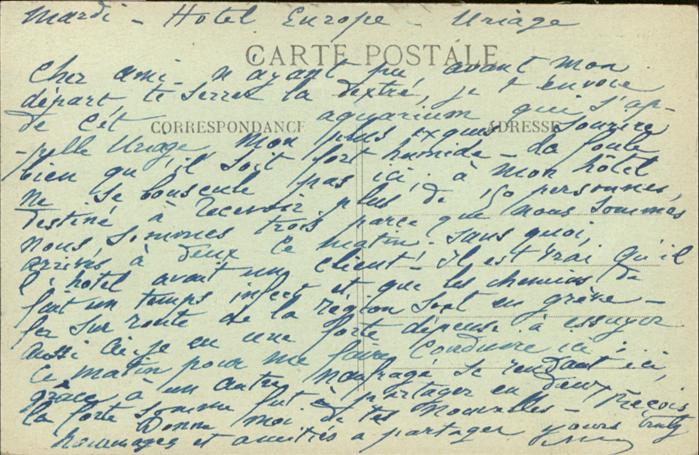 Mardi - Hotel Europe - Uriage
CARTE POSTALE
Cher ami - n'ayant pu, avant mon
départ, te serrer la dextre, je t'envoie
de cet aquarium qui s'ap-
CORRESPONDANCE ADRESSE
-pelle Uriage mon plus exquis sourire
bien qu'il soit fort humide - La foule
ne se bouscule pas ici; à mon hôtel
destiné à recevoir plus de 150 personnes,
nous sommes trois parce que nous sommes
arrivés à deux ce matin. Sans quoi,
l'hôtel avait un client! Il est vrai qu'il
fait un temps infect et que les chemins de
fer sur route de la région sont en grève -
aussi ai-je eu une forte dépense à essuyer
ce matin pour me faire conduire ici;
grâce à un autre naufragé se rendant ici,
la forte somme fut à partager en deux - Reçois
Donne moi de tes nouvelles - yours truly
hommages et amitiés à partager